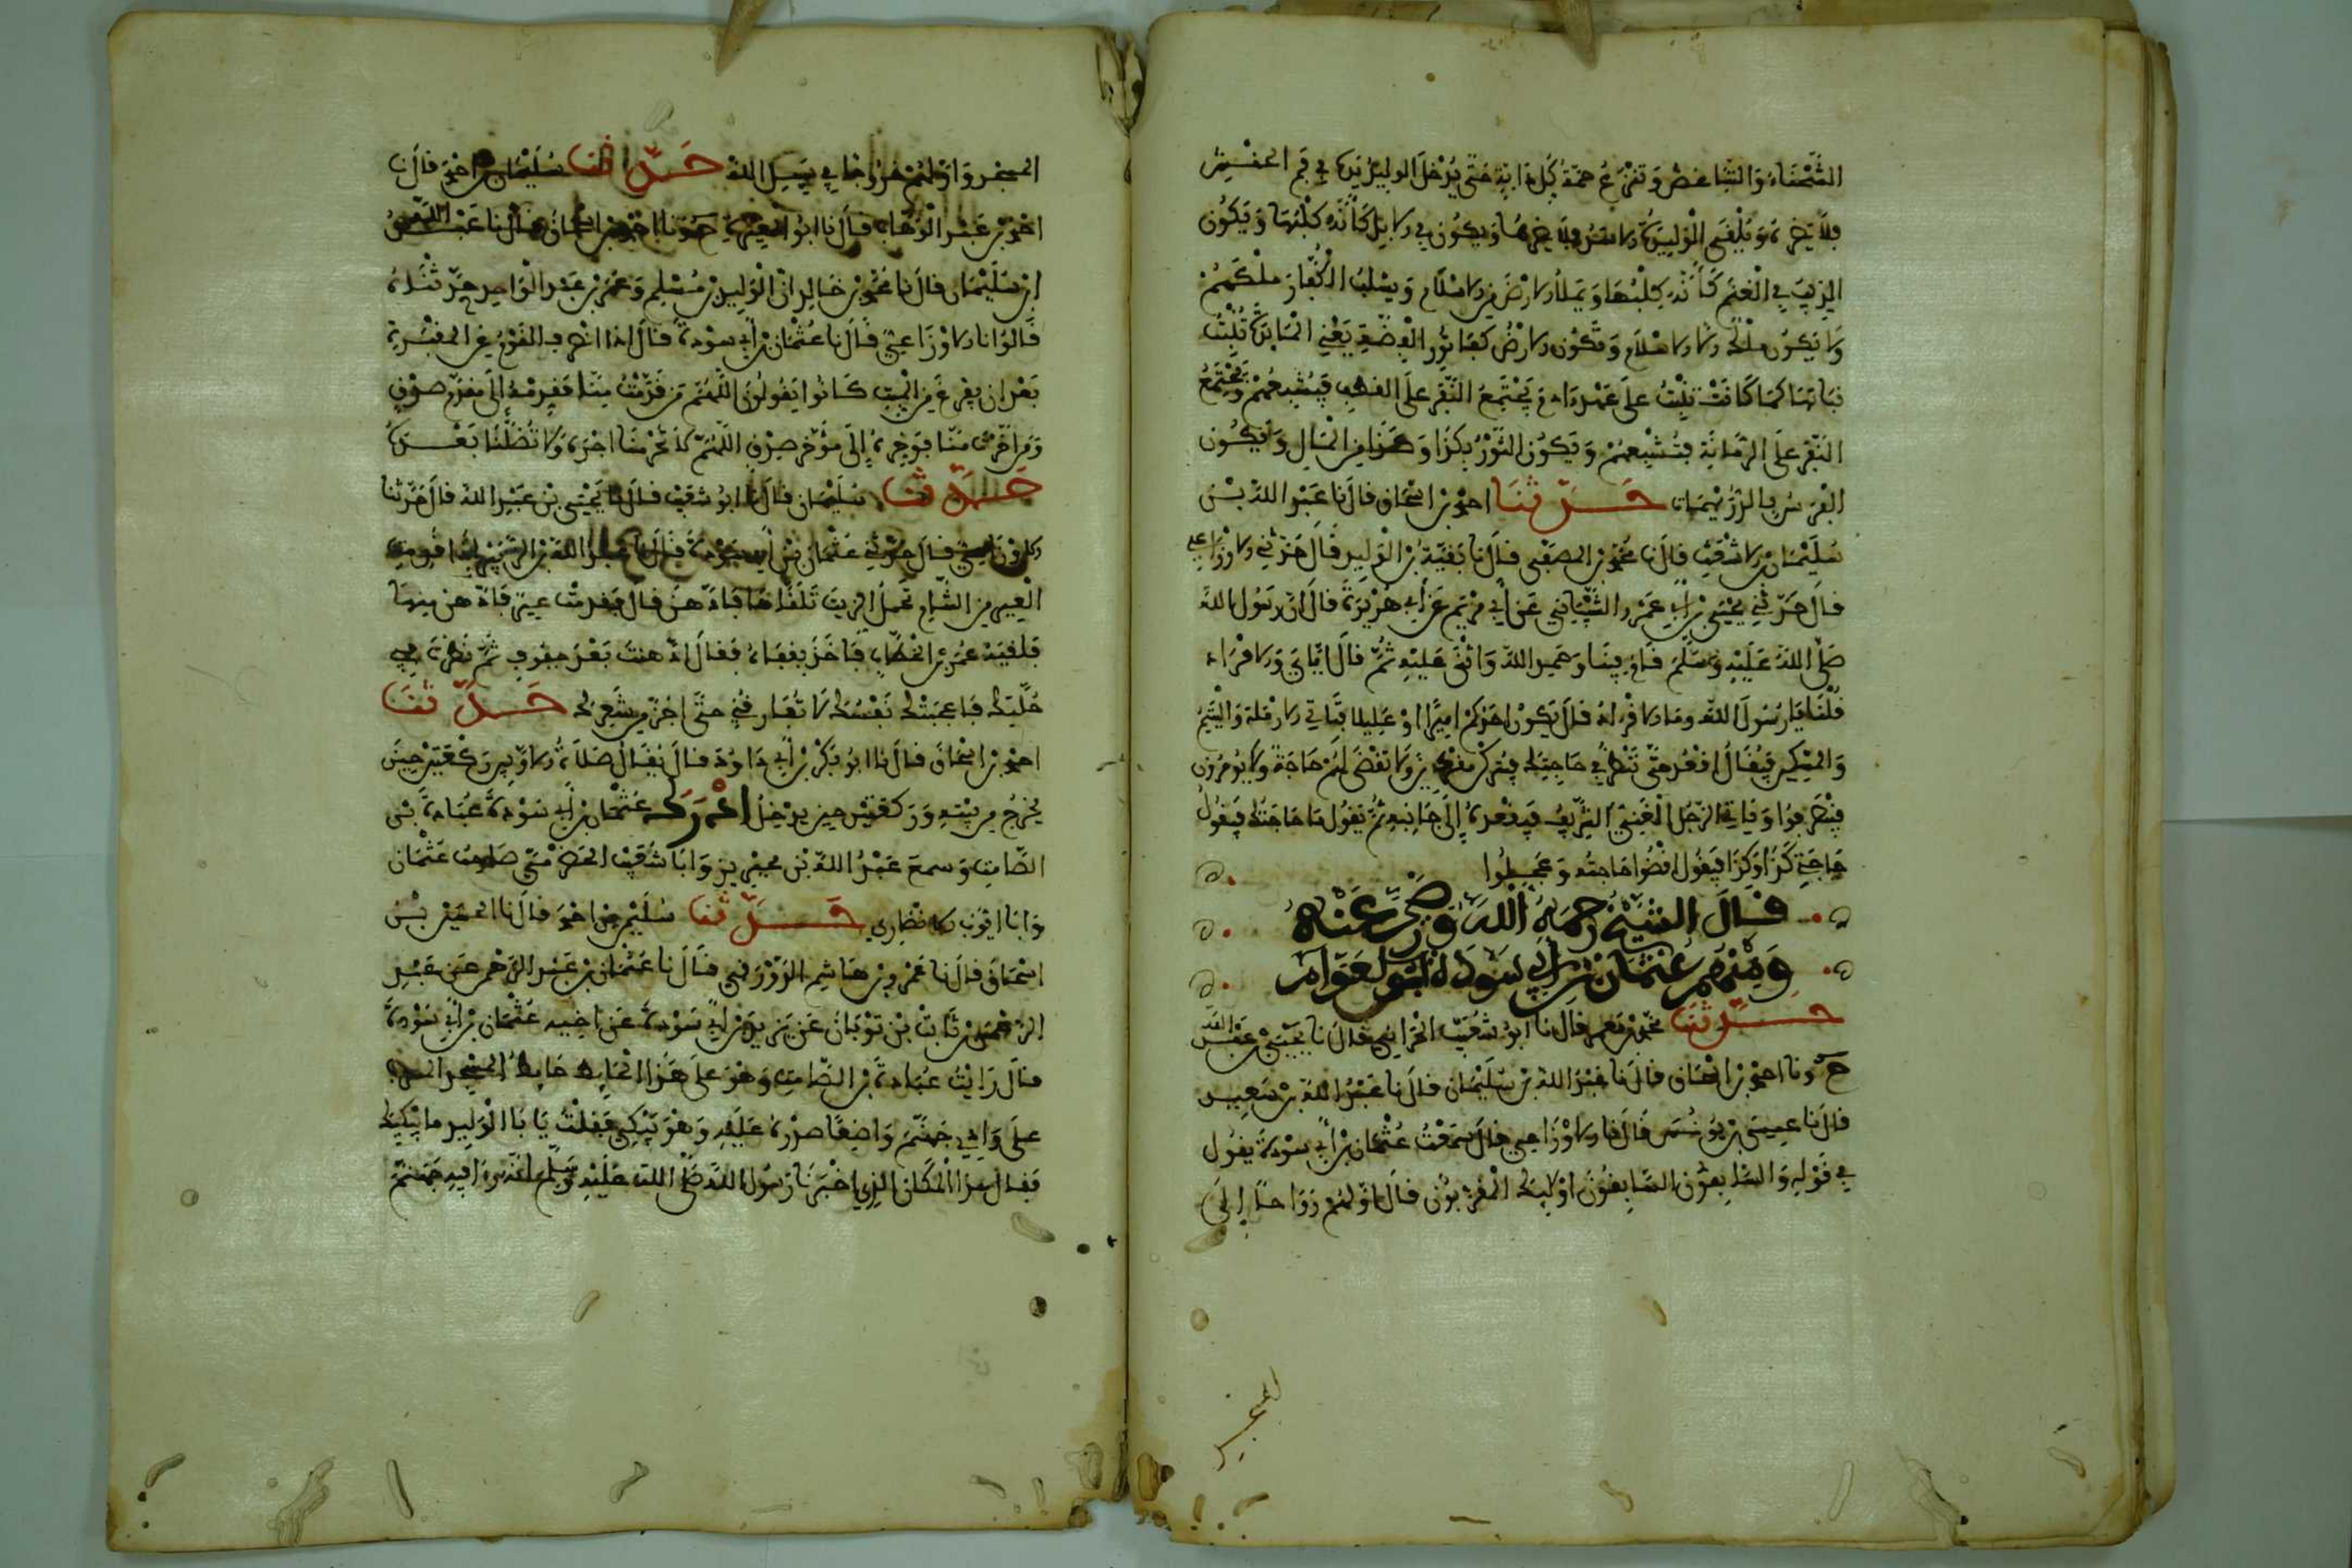 الشحناء والتباغض وتنزع حمة كل دابة حتى يدخل الوليد يده في فم الحنش
فلا يضره وتلقى الوليدة الأسد فلا يضرها ويكون في الإبل كأنه كلبها ويكون
الذيب في الغنم كأنه كلبها ويملأ الأرض من الإسلام ويسلب الكفار ملكهم
ولا يكون ملك إلا الإسلام وتكون الأرض كفاثور الفضة يعني المائدة تنبت
نباتها كما كانت تنبت على عهد آدم يجتمع النفر على القطف فيشبعهم ويجتمع
النفر على الرمانة فتشبعهم ويكون الثور بكذا وكذا من المال ويكون
الفرس بالدريهمات حدثنا احمد بن اسحاق قال نا عبد الله بن
سليمان بن الاشعث قال نا محمد بن المصفى قال نا بقية بن الوليد قال حدثني الاوزاعي
قال حدثني يحيى بن ابي عمرو الشيباني عن أبي مريم عن أبي هريرة قال ان رسول الله
صلى الله عليه وسلم قام فينا وحمد الله واثنى عليه ثم قال اياي والاقراء
قلنا يا رسول الله وما الاقراد قال يكون احدكم اميرا او عاملا فتأتي الارملة واليتيم
والمسكين فيقال اقعد حتى ننظر في حاجتك فيتركون مقردين لا تقضى لهم حاجة ولا يؤمرون
فينصرفوا ويأتي الرجل الغني الشريف فيقعده إلى جانبه ثم يقول ما حاجتك فيقول
حاجتي كذا وكذا فيقول اقضوا حاجته وعجلوا
قال الشيخ رحمه الله ورضي عنه
ومنهم عثمان بن أبي سودة ابو العوام
حدثنا محمد بن معمر قال نا ابو شعيب الحراني قال نا يحيى بن عبد الله
ح ونا احمد بن اسحاق قال نا عبد الله بن سليمان قال نا عبد الله بن سعيد
قال نا عيسى بن يونس قال نا الاوزاعي قال سمعت عثمان بن أبي سودة يقول
في قوله والسابقون السابقون اولئك المقربون قال اولهم رواحا إلى
المسجد واولهم خروجا في سبيل الله حدثنا سليمان بن احمد قال نا
احمد بن عبد الوهاب قال نا ابو المغيرة ح ونا احمد بن اسحاق قال نا عبد الله
بن سليمان قال نا محمود بن خالد ان الوليد بن مسلم وعمر بن عبد الواحد حدثاه
قالوا نا الاوزاعي قال نا عثمان بن أبي سودة قال
بعد ان يفرغ من الميت كانوا يقولون اللهم من قدمت منا فقدمه إلى مقدم صدق
ومن اخرت منا فوخره إلى مؤخر صدق اللهم لا تحرمنا اجره ولا تضلنا بعده
حدثنا سليمان قال نا ابو شعيب قال نا يحيى بن عبد الله قال حدثنا
الاوزاعي قال حدثني عثمان بن أبي سودة قال
العير من الشام تحمل الزيت تلقاها فادهن قال فقدمت عير فادهن منها
فلقيه عمر بن الخطاب فاخذ بقفاه فقال ادهنت بعد مفرق ثم نظرت في
حدثنا
احمد بن اسحاق قال نا ابو بكر بن أبي داود قال يقال صلاة الاوابين ركعتين حين
يخرج من بيته وركعتين حين يدخل ادرك عثمان بن أبي سودة عبادة بن
الصامت وسمع عبد الله بن محيريز وابا شعيب الحضرمي صاحب عثمان
وابا ايوب الانصاري حدثنا سليمان بن احمد قال نا الحسين بن
اسحاق قال نا عمرو بن هاشم البيروتي قال نا عثمان بن عبد الرحمن عن عبد
الرحمن بن ثابت بن ثوبان عن زياد بن أبي سودة عن اخيه عثمان بن أبي سودة
قال رايت عبادة بن الصامت وهو على هذا الحايط حايط المسجد المشرف
على وادي جهنم واضعا صدره عليه وهو يبكي فقلت يا با الوليد ما يبكيك
فقال هذا المكان الذي اخبرنا رسول الله صلى الله عليه وسلم انه راى فيه جهنم